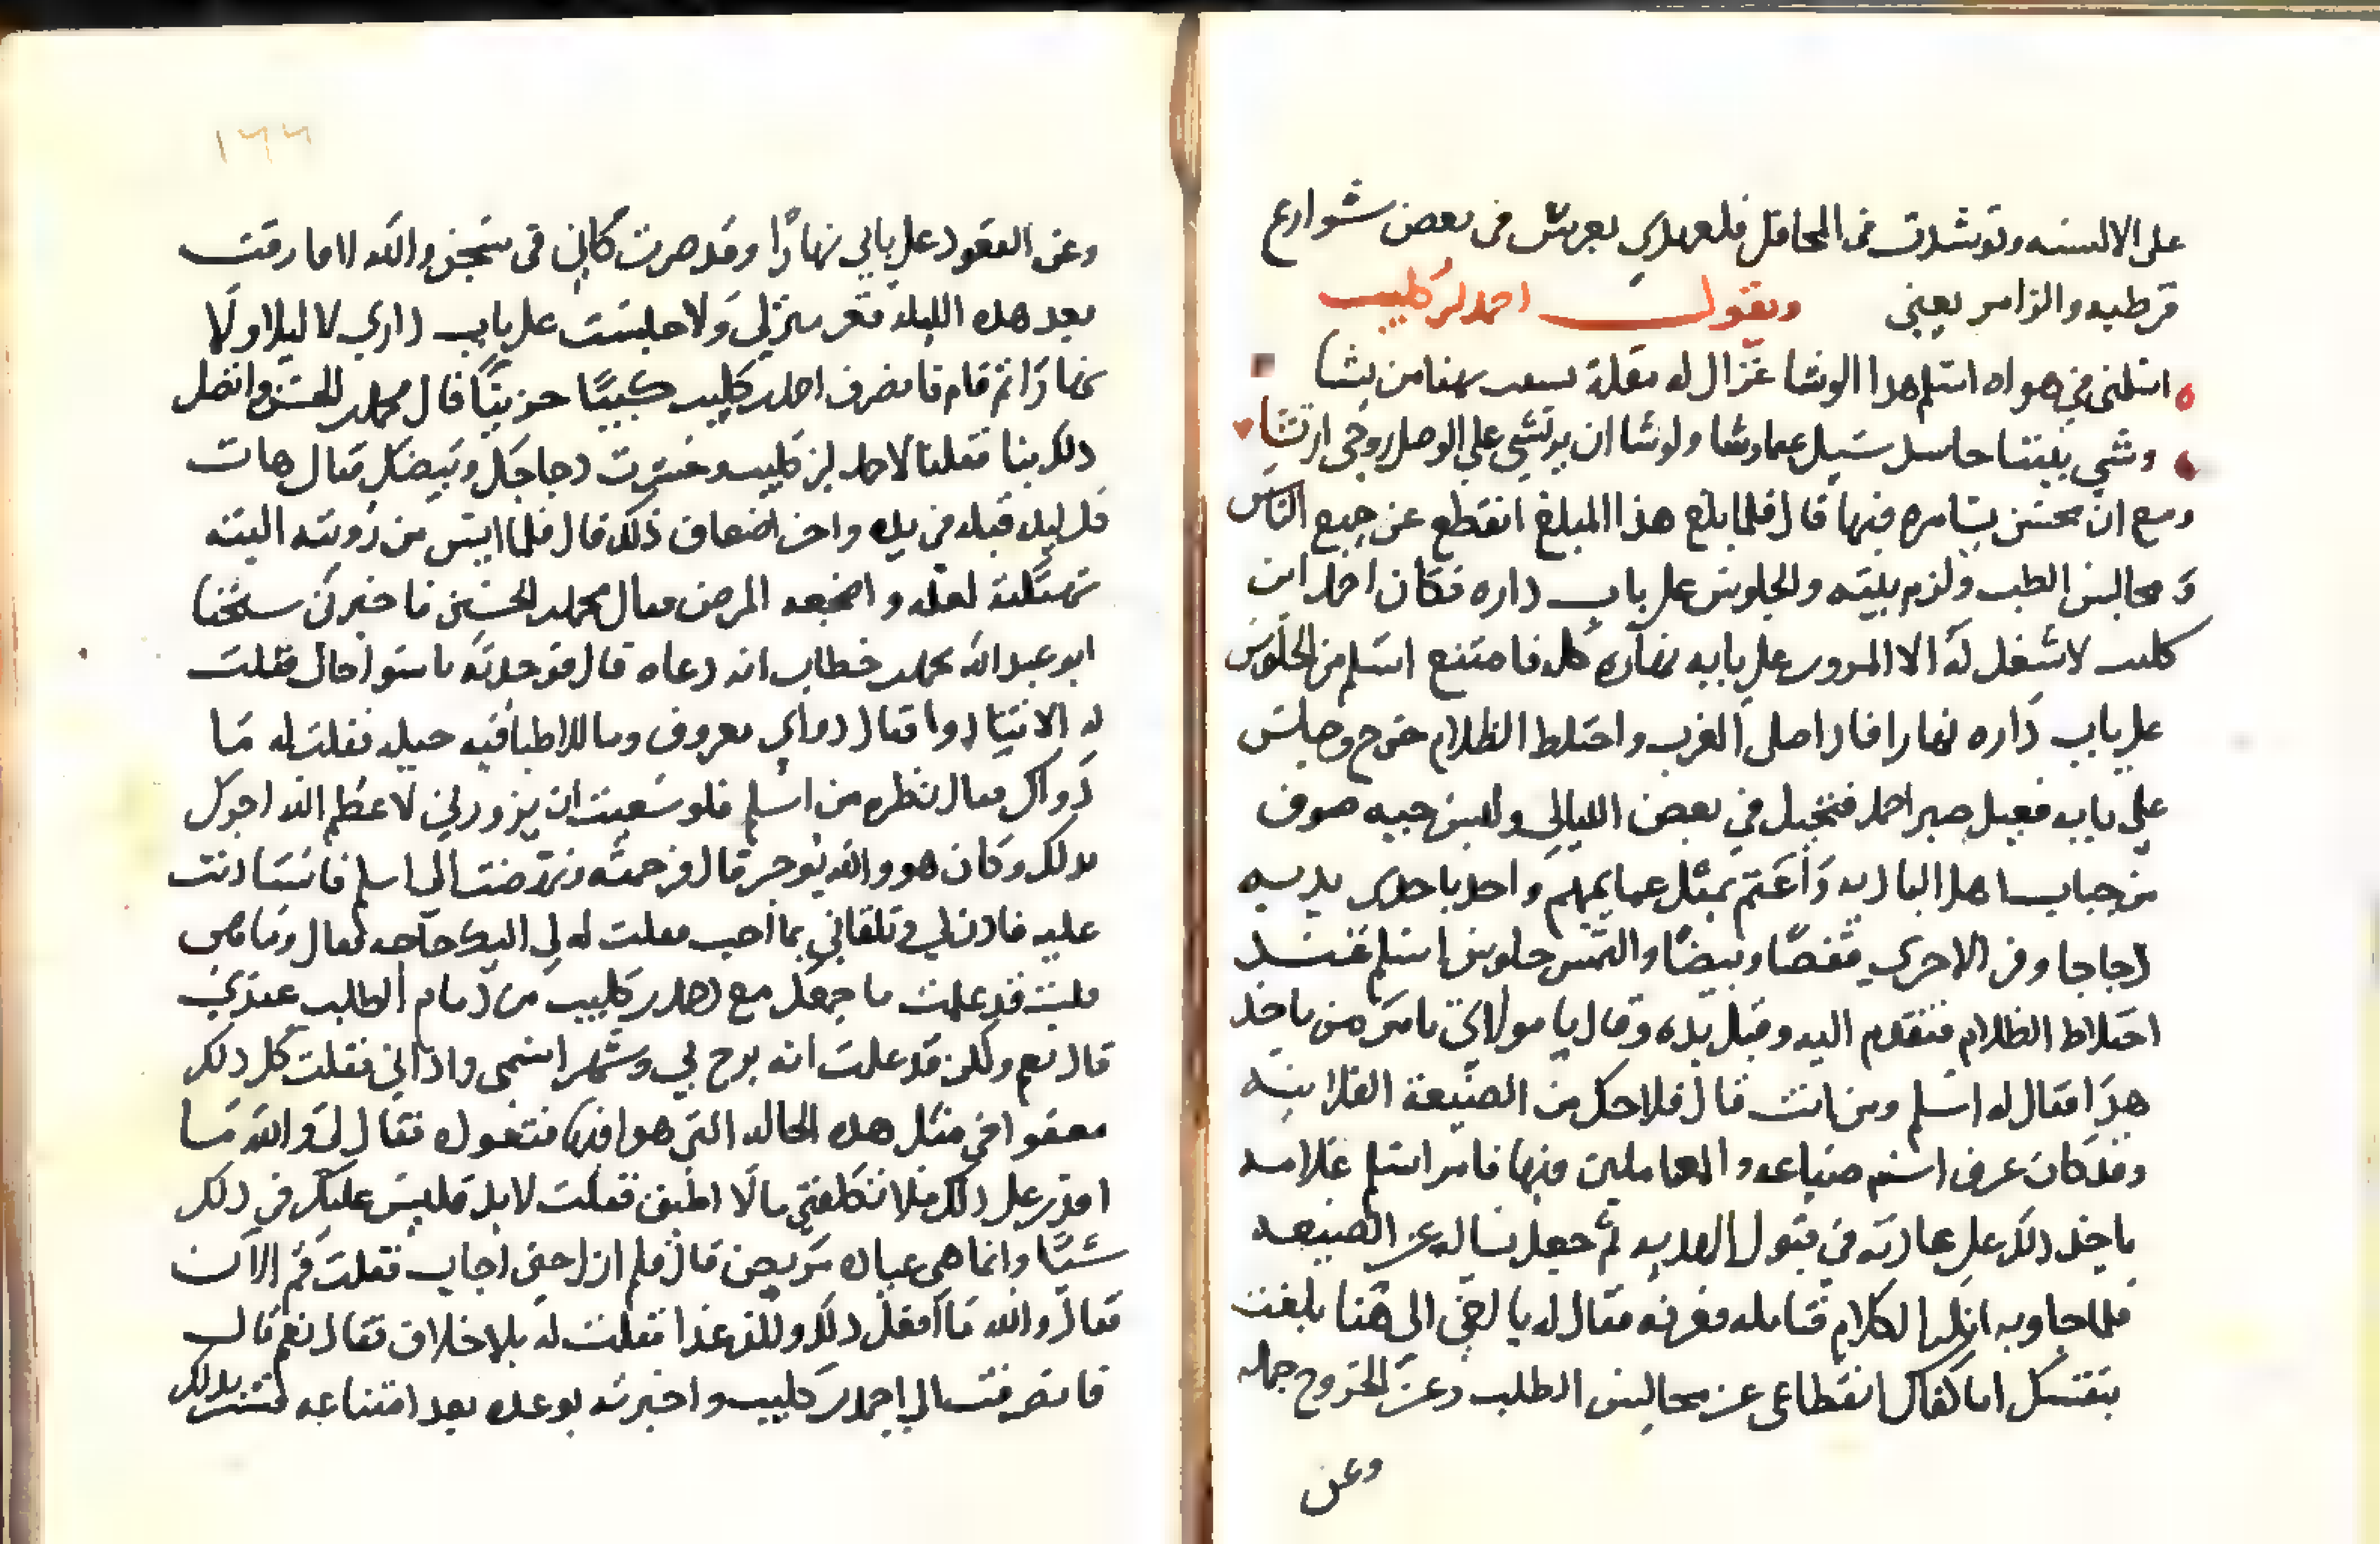 على الالسنه وتونشدت فى المحافل فلعهدى بعرس فى بعض شوارع
قرطبه والزامر يغنى ويقول احمد بن كليب
اسلمنى فى هواه اسلم هذا الرشا غزال له مقلة يصيب بها من يشا
وشى بيننا حاسد سيسل عما وشا ولو شا ان يرتشى على الوصل روحى ارتشا
ومع ان محسن يسامره فيها قال فلما بلغ هذا المبلغ انقطع عن جميع الناس
و مجالس الطلب ولزم بيته والجلوس على باب داره فكان احمد ابن
كليب لا شغل له الا المرور على بابه نهاره كله فامتنع اسلم من الجلوس
على باب داره نهارا فاذا صلى المغرب واختلط الظلام خرج وجلس
على بابه فعيل صبر احمد فتخيل في بعض الليالي ولبس جبه صوف
من جباب اهل الباديه واعتم بمثل عمايمهم واخذ باحدى يديه
دجاجا وفى الاخرى قفصا وبيضا والتمس جلوس اسلم عند
اختلاط الظلام فتقدم اليه وقبل يده وقال يا مولاي تامر من ياخذ
هذا فقال له اسلم ومن انت قال فلاحك من الضيعة الفلانيه
وقد كان عرف اسم ضياعه والعاملين فيها فامر اسلم غلامه
ياخذ ذلك على عادته في قبول الهديه ثم جعل يساله عن الضيعه
فلما جاوبه انكر الكلام فتامله فعرفه فقال له يا اخى الى هنا بلغت
بنفسك اما كفاك انقطاعى عن مجالس الطلب وعن الخروج جمله
وعن
١٦٦
وعن القعود على بابي نهارا وقد صرت كاني في سجن والله لا فارقت
بعد هذه الليله قعر منزلي ولا جلست على باب داري لا ليلا ولا
نهارا ثم قام فانصرف احمد بن كليب كييبا حزينا قال محمد بن الحسن واتصل
ذلك بنا فقلنا لاحمد بن كليب وخسرت دجاجك وبيضك فقال هات
كل ليله قبله في يده واخسر اضعاف ذلك قال فلما ايس من رويته البته
نهكته العله واضجعه المرض فقال محمد بن الحسن فاخبرنى شيخنا
ابو عبد الله محمد بن خطاب انه دعاه قال فوجدته باسوا حال فقلت
له الا تتداوا فقال دواي معروف وما للاطبا فيه حيله فقلت له ما
دواك فقال نظره من اسلم فلو سعيت ان يزورني لاعظم الله اجرك
بذلك وكان هو والله يوجر قال فرحمته ونهضت الى اسلم فاستاذنت
عليه فاذن لي وتلقاني بما احب فقلت له لي اليك حاجه فقال وما هى
قلت قد علمت ما جمعك مع احمد بن كليب من ذمام الطلب عندي
قال نعم ولكن قد علمت انه برح بي وشهر اسمى واذاني فقلت كل ذلك
معفوا فى مثل هذه الحاله التى هو فيها فتعوده فقال لى والله ما
اقدر على ذلك فلا تكلفني ما لا اطيق فقلت لا بد فليس عليك في ذلك
شيا وانما هى عياده مريض قال فلم ازل حتى اجاب فقلت قم الان
فقال والله ما افعل ذلك ولكن غدا فقلت له بلا خلاف فقال نعم قال
فانصرفت الى احمد بن كليب واخبرته بوعده بعد امتناعه فسر بذلك